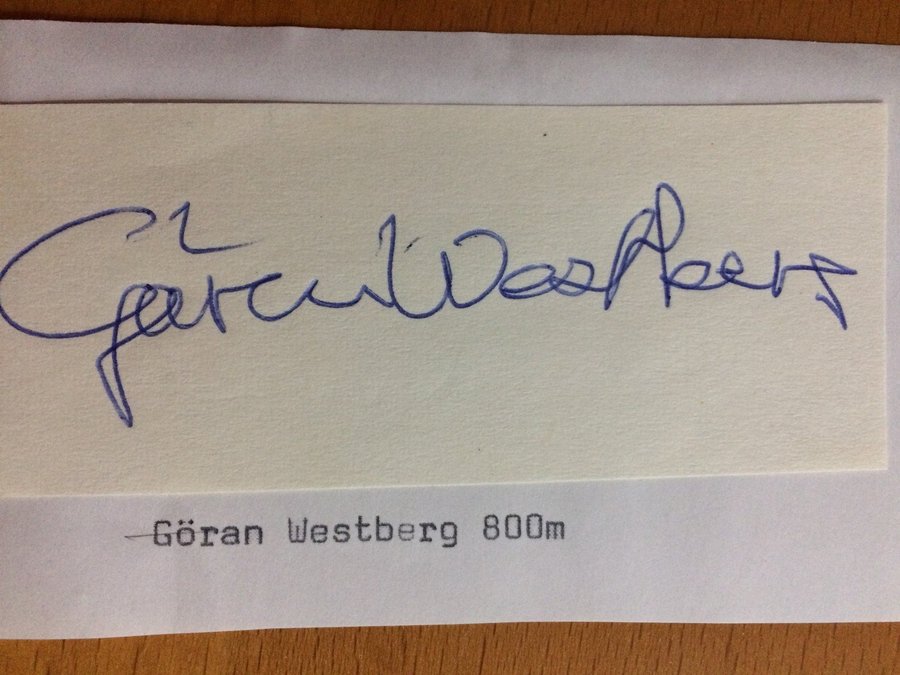 Göran Westberg
Göran Westberg 800m